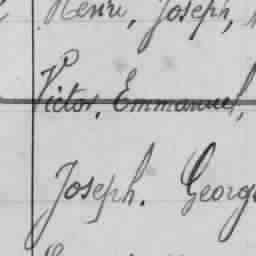 Henri, Joseph,
Victor, Emmanuel,
Joseph. George